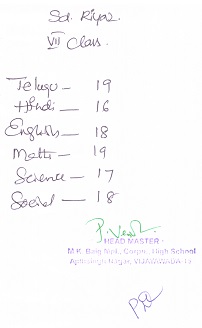 Sd. Riyaz.
VII Class.
Telugu — 19
Hindi — 16
English — 18
Maths — 19
Science — 17
Social — 18
HEAD MASTER
M.K. Baig Mpl., Corpn., High School
Nagar, VIJAYAWADA